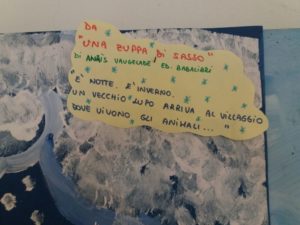 DA
"UNA ZUPPA DI SASSO"
DI ANAÏS VAUGELADE, ED. BABALIBRI
"È NOTTE. È INVERNO.
UN VECCHIO LUPO ARRIVA AL VILLAGGIO
DOVE VIVONO GLI ANIMALI..."